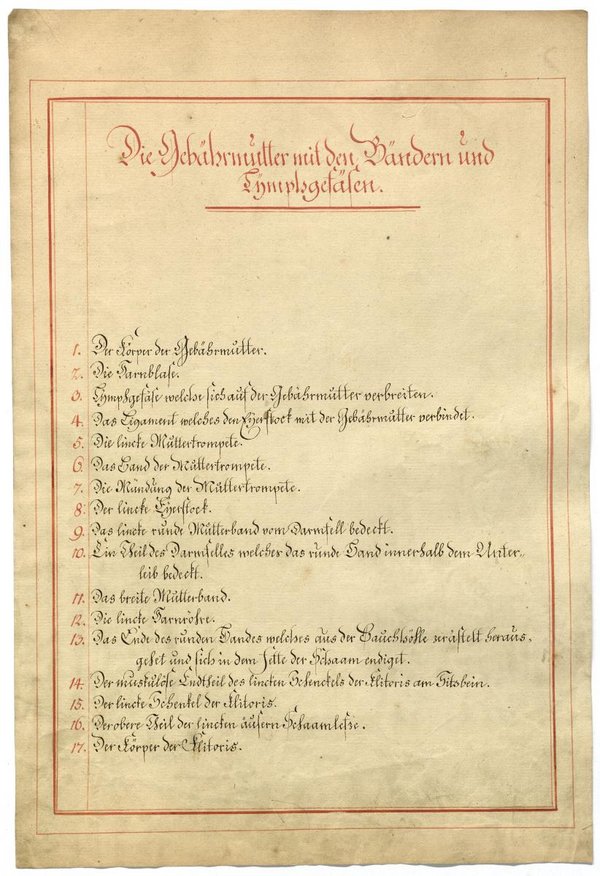 Die Gebährmutter mit den Bändern und
Lymphgefäsen.
1. Der Körper der Gebährmutter.
2. Die Harnblase.
3. Lymphgefäse welche sich auf der Gebährmutter verbreiten.
4. Das Ligament welches den Eyerstock mit der Gebährmutter verbindet.
5. Die lincke Muttertrompete.
6. Das Band der Muttertrompete.
7. Die Mündung der Muttertrompete.
8. Der lincke Eyerstock.
9. Das lincke runde Mutterband vom Darmfell bedeckt.
10. Ein Theil des Darmfelles welcher das runde Band innerhalb dem Unter-
leib bedeckt.
11. Das breite Mutterband.
12. Die lincke Harnröhre.
13. Das Ende des runden Bandes welches aus der Bauchhöhle zerästelt heraus-
gehet und sich in dem Fette der Schaam endiget.
14. Der muskulöse Endtheil des lincken Schenckels der Klitoris am Sitzbein.
15. Der lincke Schenkel der Klitoris.
16. Der obere Theil der lincken äusern Schaamlefze.
17. Der Körper der Klitoris.